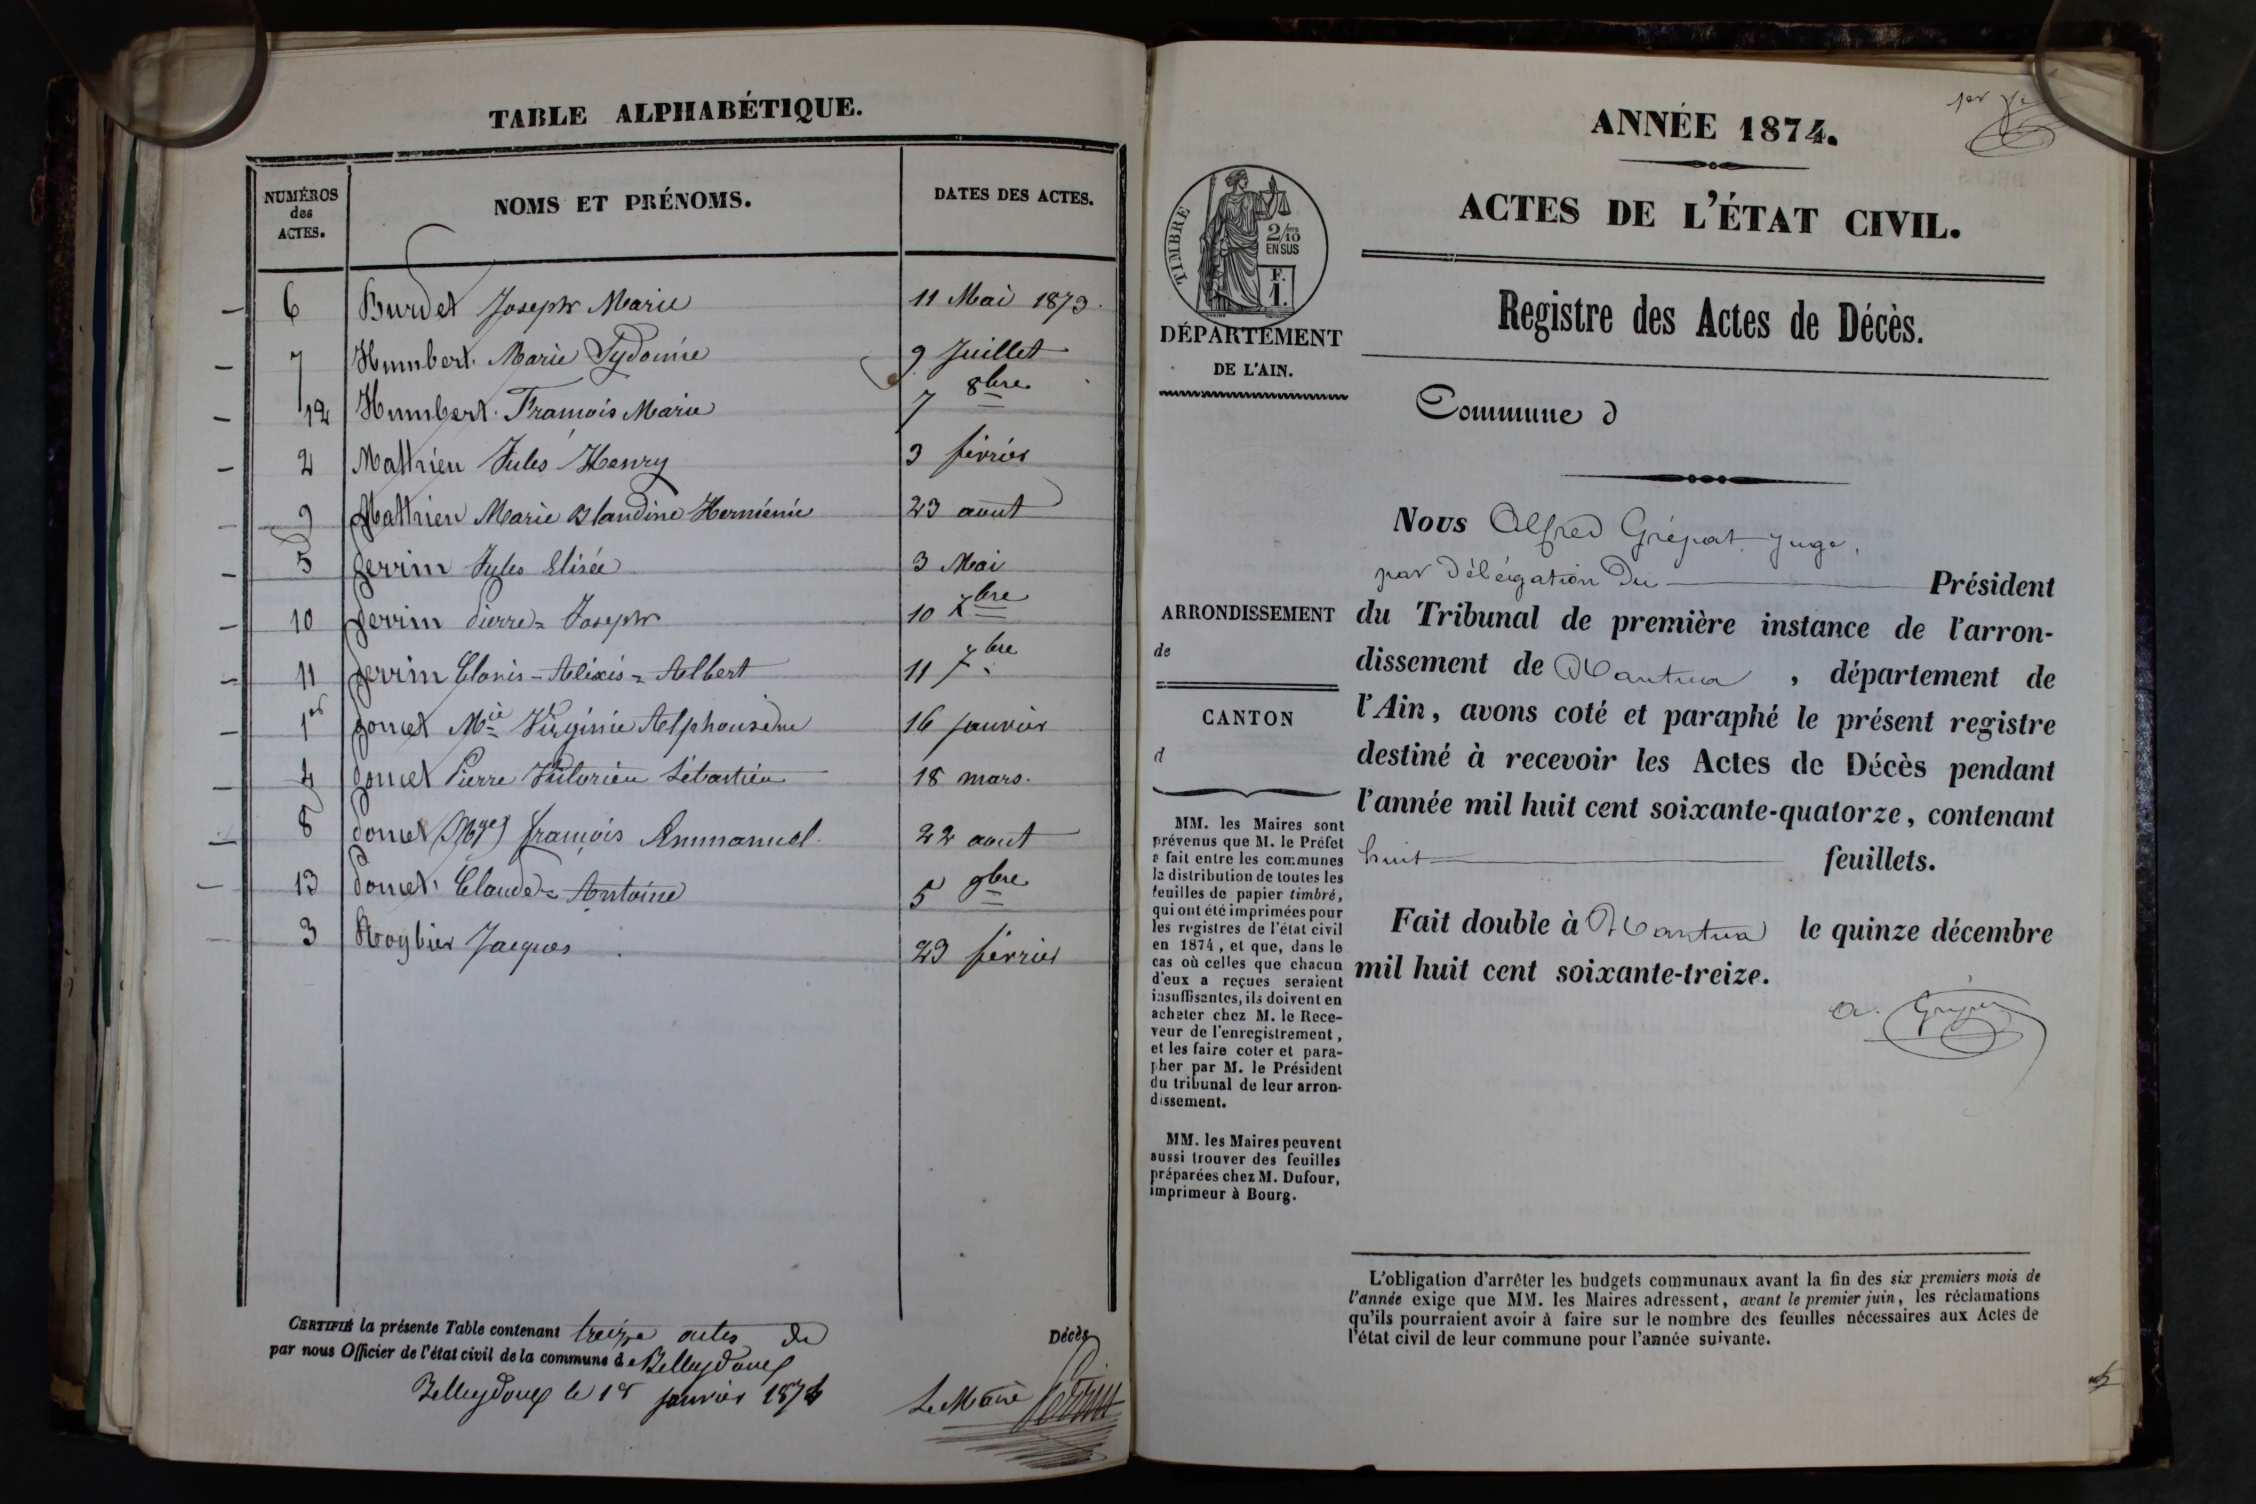 TABLE ALPHABÉTIQUE.
NUMÉROS
des
ACTES.
NOMS ET PRÉNOMS.
DATES DES ACTES.
6 Burdet Joseph Marie 11 Mai 1873.
7 Humbert Marie Sydonie 9 Juillet
12 Humbert François Marie 7 8bre
2 Mathieu Jules Henry 3 février
9 Mathieu Marie Blandine Herménie 23 aout
5 Perrin Jules Elisée 3 Mai
10 Perrin Pierre = Joseph 10 7bre
11 Perrin Clovis - Alixis = Albert 11 7bre
1er Poncet Mie Virginie Alphonsine 16 janvier
4 Poncet Pierre Victorien Sébastien 18 mars.
8 Poncet François Emmanuel 22 aout
13 Poncet Claude = Antoine 5 9bre
3 Roybier Jacques 23 février
CERTIFIÉ la présente Table contenant treize actes de Décès
par nous Officier de l'état civil de la commune de Belleydoux
Belleydoux le 1er janvier 1874
Le Maire Perrin
1er
ANNÉE 1874.
ACTES DE L'ÉTAT CIVIL.
TIMBRE
2/10
EN SUS
F.
1.
DÉPARTEMENT
DE L'AIN.
Registre des Actes de Décès.
Commune d
ARRONDISSEMENT
de
CANTON
d
MM. les Maires sont
prévenus que M. le Préfet
a fait entre les communes
la distribution de toutes les
feuilles de papier timbré,
qui ont été imprimées pour
les registres de l'état civil
en 1874, et que, dans le
cas où celles que chacun
d'eux a reçues seraient
insuffisantes, ils doivent en
acheter chez M. le Rece-
veur de l'enregistrement,
et les faire coter et para-
pher par M. le Président
du tribunal de leur arron-
dissement.
MM. les Maires peuvent
aussi trouver des feuilles
préparées chez M. Dufour,
imprimeur à Bourg.
Nous Alfred Grépat Juge,
par délégation du Président
du Tribunal de première instance de l'arron-
dissement de Nantua, département de
l'Ain, avons coté et paraphé le présent registre
destiné à recevoir les Actes de Décès pendant
l'année mil huit cent soixante-quatorze, contenant
huit feuillets.
Fait double à Nantua le quinze décembre
mil huit cent soixante-treize.
L'obligation d'arrêter les budgets communaux avant la fin des six premiers mois de
l'année exige que MM. les Maires adressent, avant le premier juin, les réclamations
qu'ils pourraient avoir à faire sur le nombre des feuilles nécessaires aux Actes de
l'état civil de leur commune pour l'année suivante.